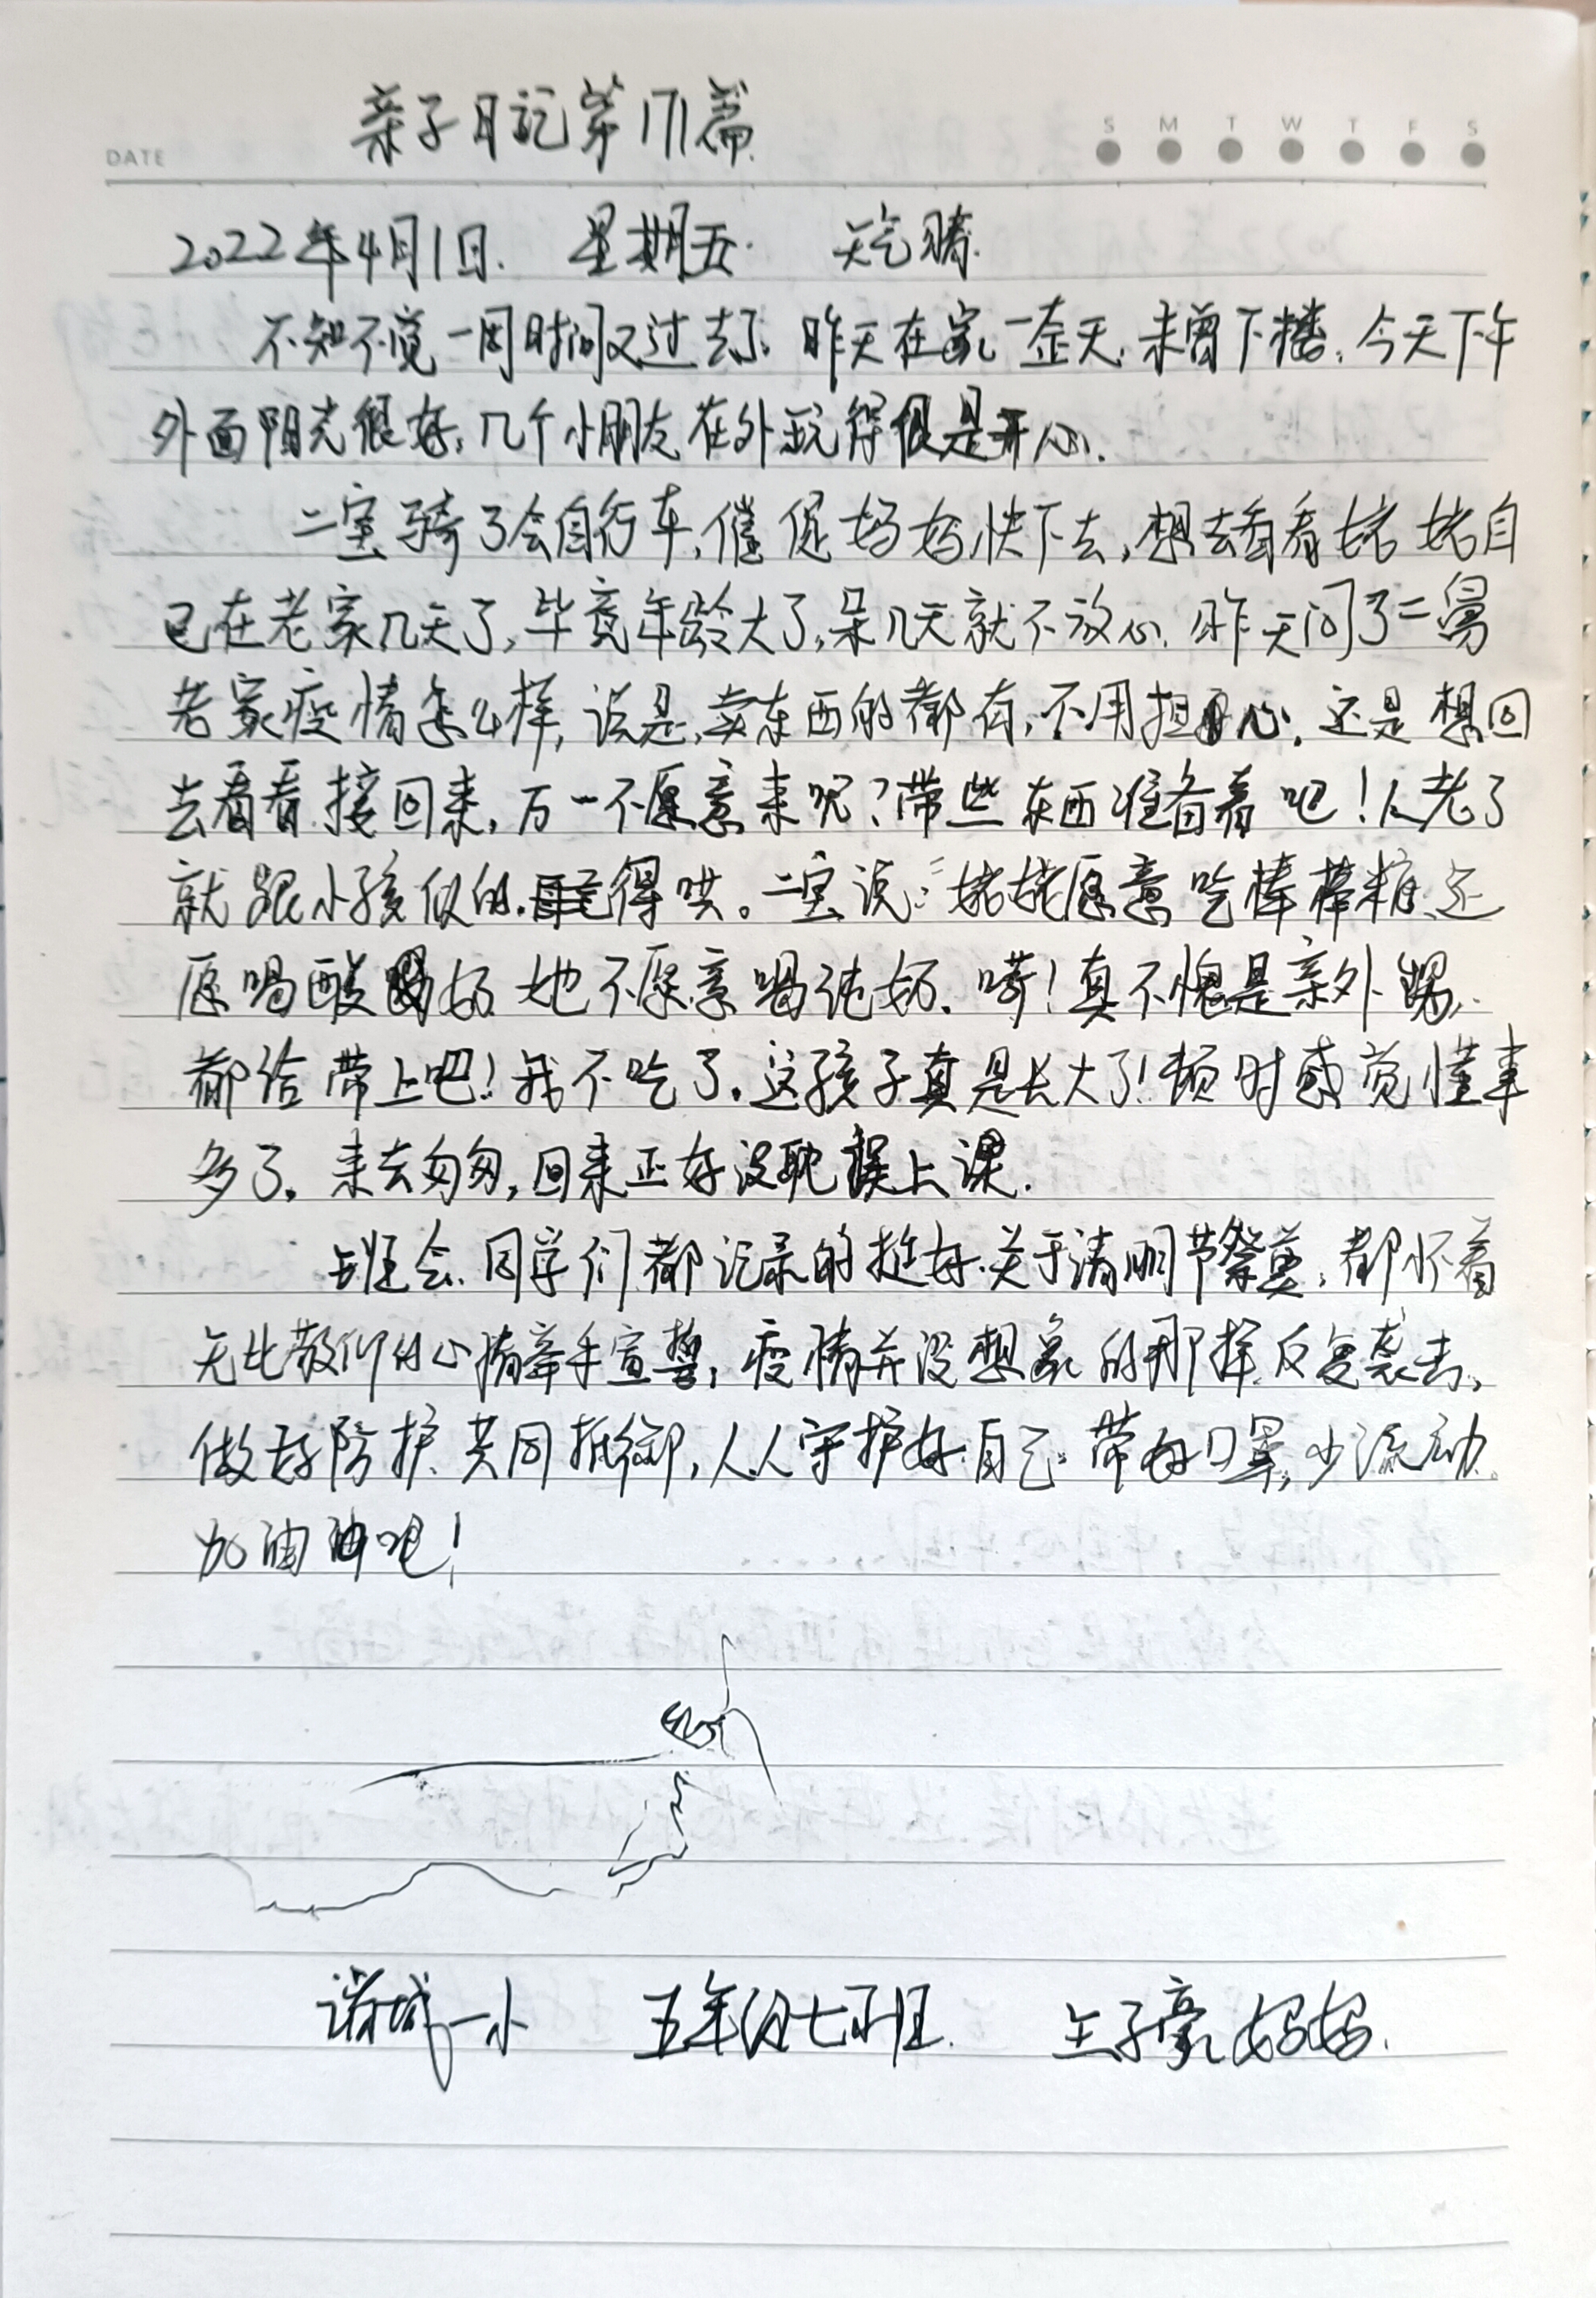 亲子日记第171篇
DATE
S M T W T F S
2022年4月1日. 星期五. 天气晴.
不知不觉一周时间又过去了.昨天在家一整天.未曾下楼.今天下午
外面阳光很好,几个小朋友在外玩得很是开心.
二宝骑了会自行车,催促妈妈快下去,想去看看姥姥自
己在老家几天了,毕竟年龄大了,呆几天就不放心.昨天问了二舅
老家疫情怎么样,说是,卖东西的都有,不用担心.还是想回
去看看接回来,万一不愿意来呢?带些东西准备着吧!人老了
就跟小孩似的.得哄。二宝说:姥姥愿意吃棒棒糖.还
愿喝酸奶她不愿意喝纯奶.嗬!真不愧是亲外甥,
都给带上吧!我不吃了.这孩子真是长大了!顿时感觉懂事
多了.来去匆匆,回来正好没耽误上课.
班会.同学们都记录的挺好.关于清明节祭奠,都怀着
无比敬仰的心情举手宣誓,疫情并没想象的那样反复袭击,
做好防护.共同抵御,人人守护好自己.带好口罩,少流动.
加油吧!
诸城一小 五年级七班. 王子豪妈妈.